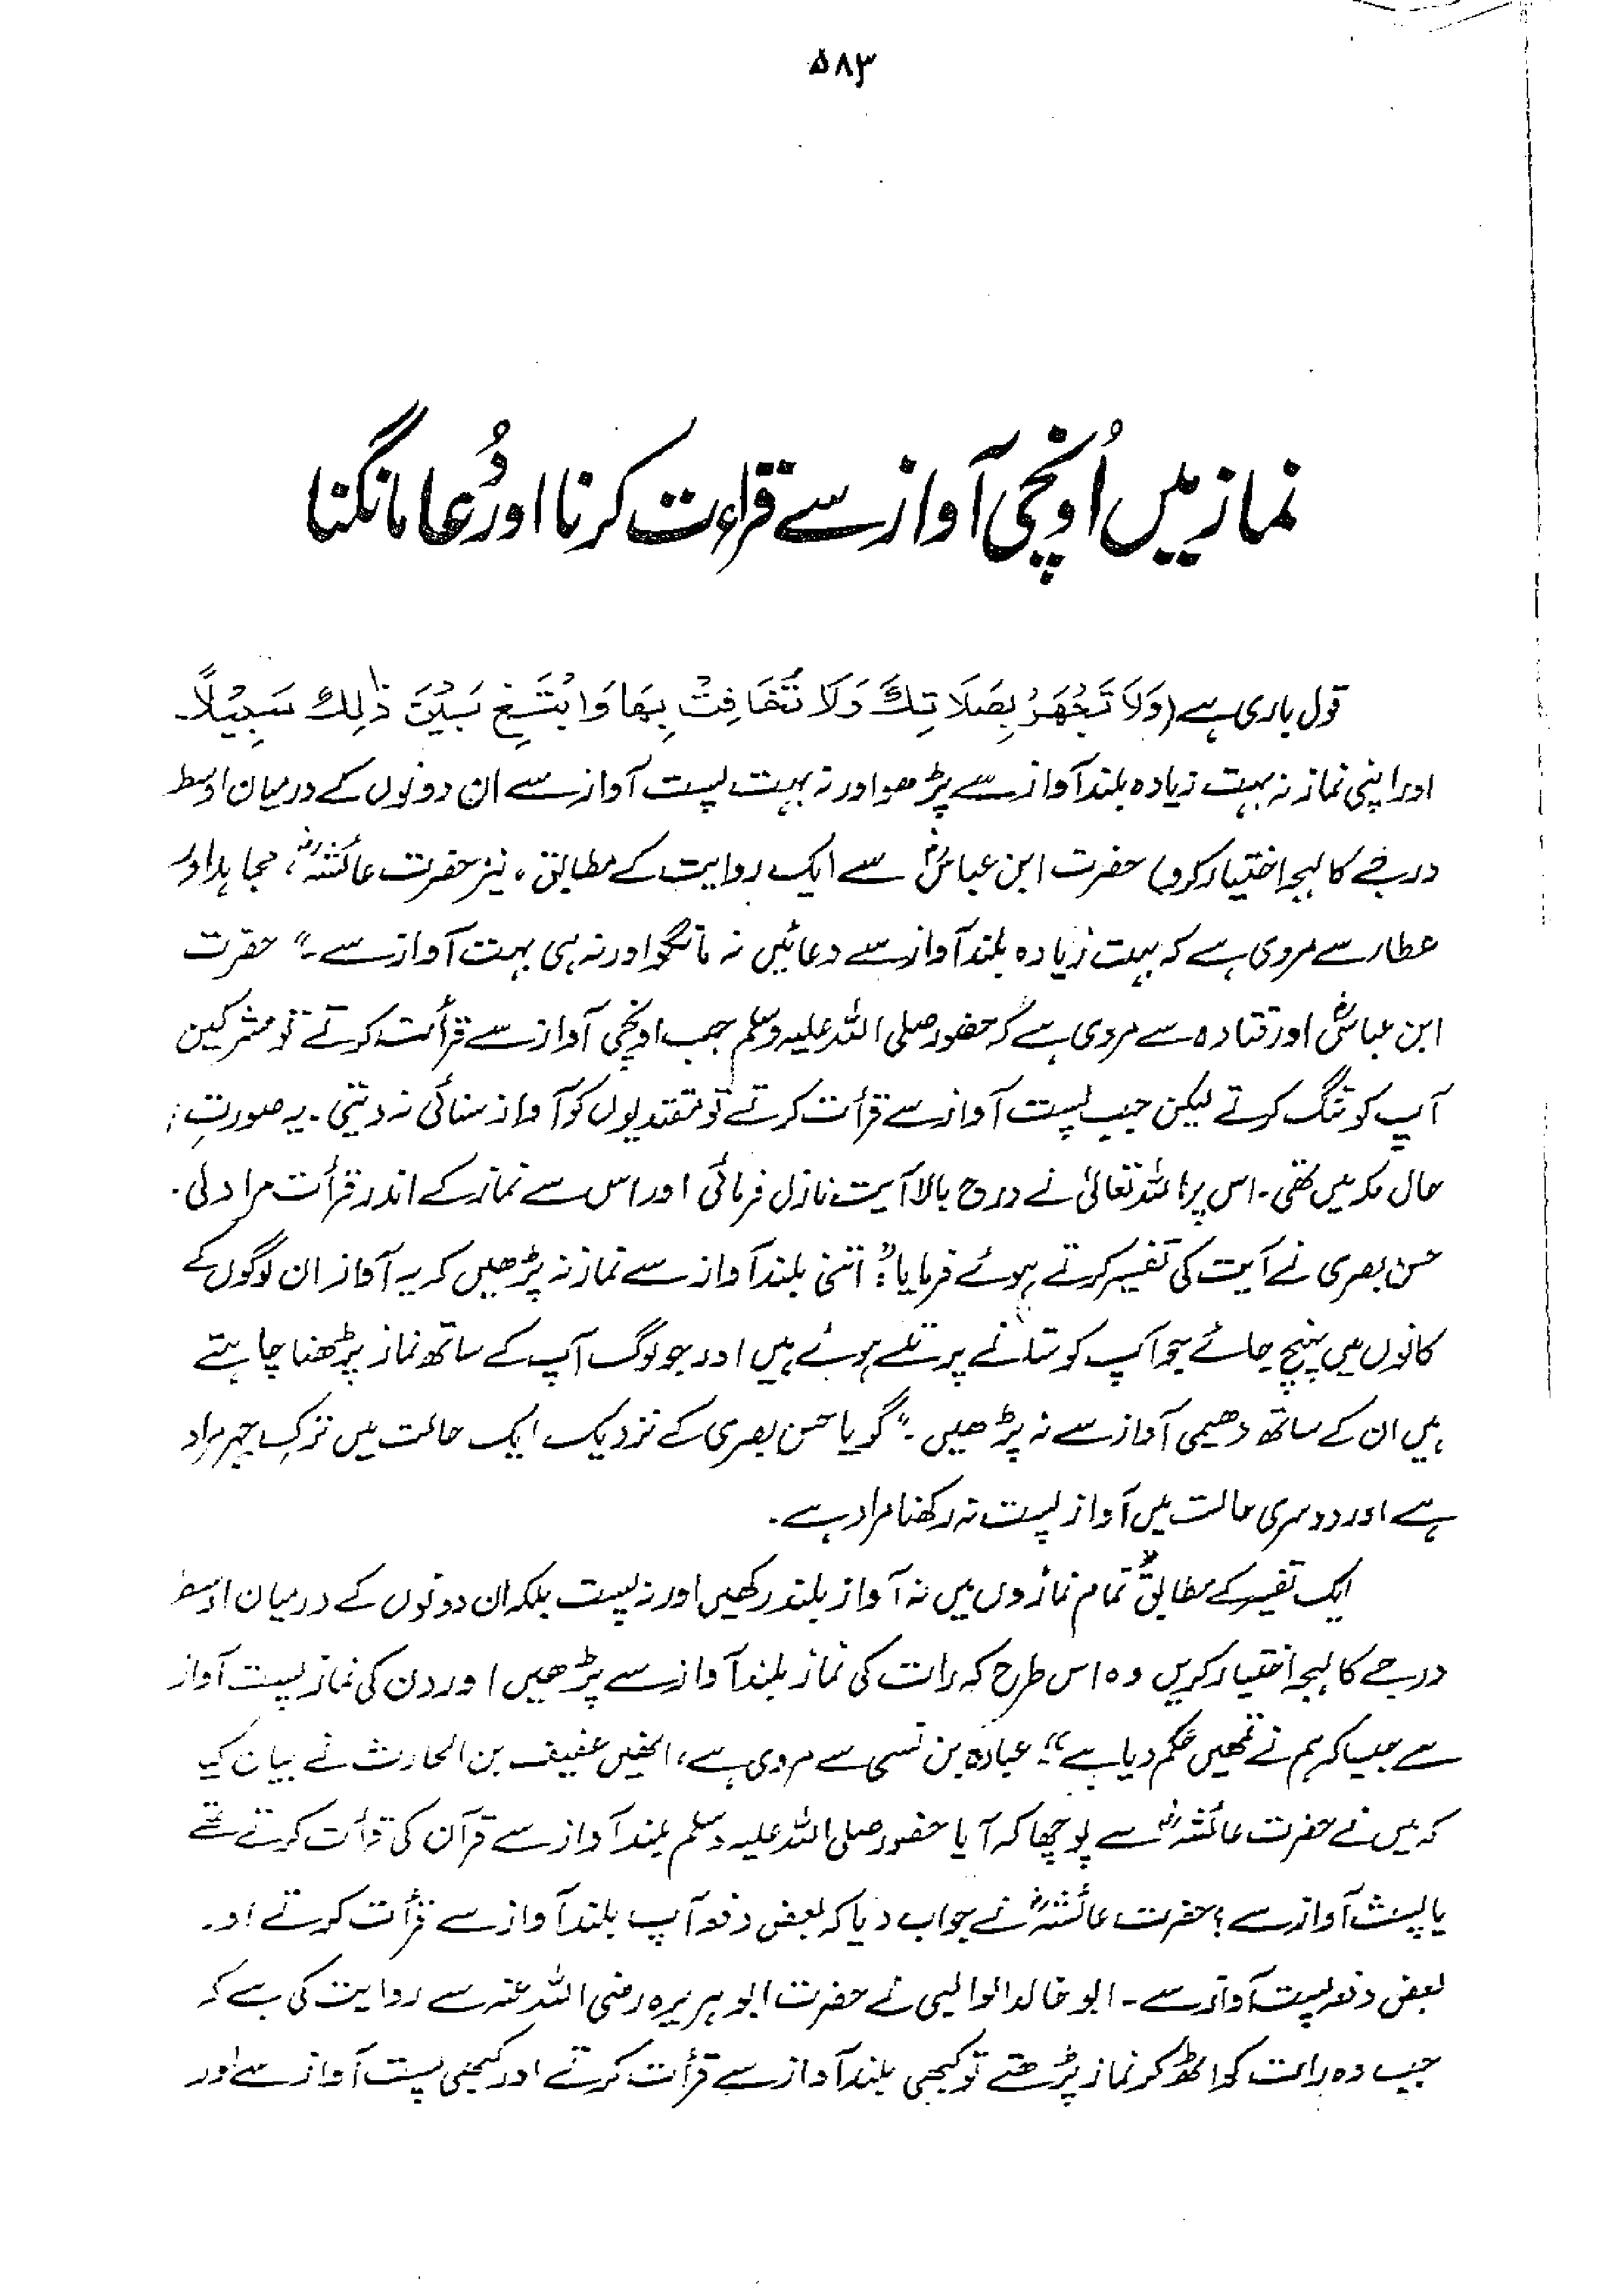 ۵۸۳
نماز میں اُونچی آواز سے قراءت کرنا اور دُعا مانگنا
قول باری ہے (وَلَا تَجْهَرْ بِصَلَاتِكَ وَلَا تُخَافِتْ بِهَا وَابْتَغِ بَيْنَ ذٰلِكَ سَبِيْلًا۔
اور اپنی نماز نہ بہت زیادہ بلند آواز سے پڑھو اور نہ بہت پست آواز سے ان دونوں کے درمیان اوسط
درجے کا لہجہ اختیار کرو) حضرت ابن عباسؓ سے ایک روایت کے مطابق، نیز حضرت عائشہؓ، مجاہد اور
عطار سے مروی ہے کہ بہت زیادہ بلند آواز سے دعائیں نہ مانگو اور نہ ہی بہت آواز سے۔" حضرت
ابن عباسؓ اور قتادہ سے مروی ہے کہ حضور صلی اللہ علیہ وسلم جب اونچی آواز سے قرأت کرتے تو مشرکین
آپ کو تنگ کرتے لیکن جب پست آواز سے قرأت کرتے تو مقتدیوں کو آواز سنائی نہ دیتی۔ یہ صورتِ
حال مکہ میں تھی۔ اس پر اللہ تعالیٰ نے درج بالا آیت نازل فرمائی اور اس سے نماز کے اندر قرأت مراد لی۔
حسن بصری نے آیت کی تفسیر کرتے ہوئے فرمایا: "اتنی بلند آواز سے نماز نہ پڑھیں کہ یہ آواز ان لوگوں کے
کانوں میں پہنچ جائے جو آپ کو ستانے پر تلے ہوئے ہیں اور جو لوگ آپ کے ساتھ نماز پڑھنا چاہتے
ہیں ان کے ساتھ دھیمی آواز سے نہ پڑھیں۔" گویا حسن بصری کے نزدیک ایک حالت میں ترکِ جہر مراد
ہے اور دوسری حالت میں آواز پست نہ رکھنا مراد ہے۔
ایک تفسیر کے مطابق "تمام نمازوں میں نہ آواز بلند رکھیں اور نہ پست بلکہ ان دونوں کے درمیان اوسط
درجے کا لہجہ اختیار کریں وہ اس طرح کہ رات کی نماز بلند آواز سے پڑھیں اور دن کی نماز پست آواز
سے جیسا کہ ہم نے تمھیں حکم دیا ہے"۔ عبادہ بن نسی سے مروی ہے، انھیں غضیف بن الحارث نے بیان کیا
کہ میں نے حضرت عائشہؓ سے پوچھا کہ آیا حضور صلی اللہ علیہ وسلم بلند آواز سے قرآن کی قرأت کرتے تھے
یا پست آواز سے؟ حضرت عائشہؓ نے جواب دیا کہ بعض دفعہ آپ بلند آواز سے قرأت کرتے اور
بعض دفعہ پست آواز سے۔ ابو خالد الوالبی نے حضرت ابو ہریرہ رضی اللہ عنہ سے روایت کی ہے کہ
جب وہ رات کو اٹھ کر نماز پڑھتے تو کبھی بلند آواز سے قرأت کرتے اور کبھی پست آواز سے اور